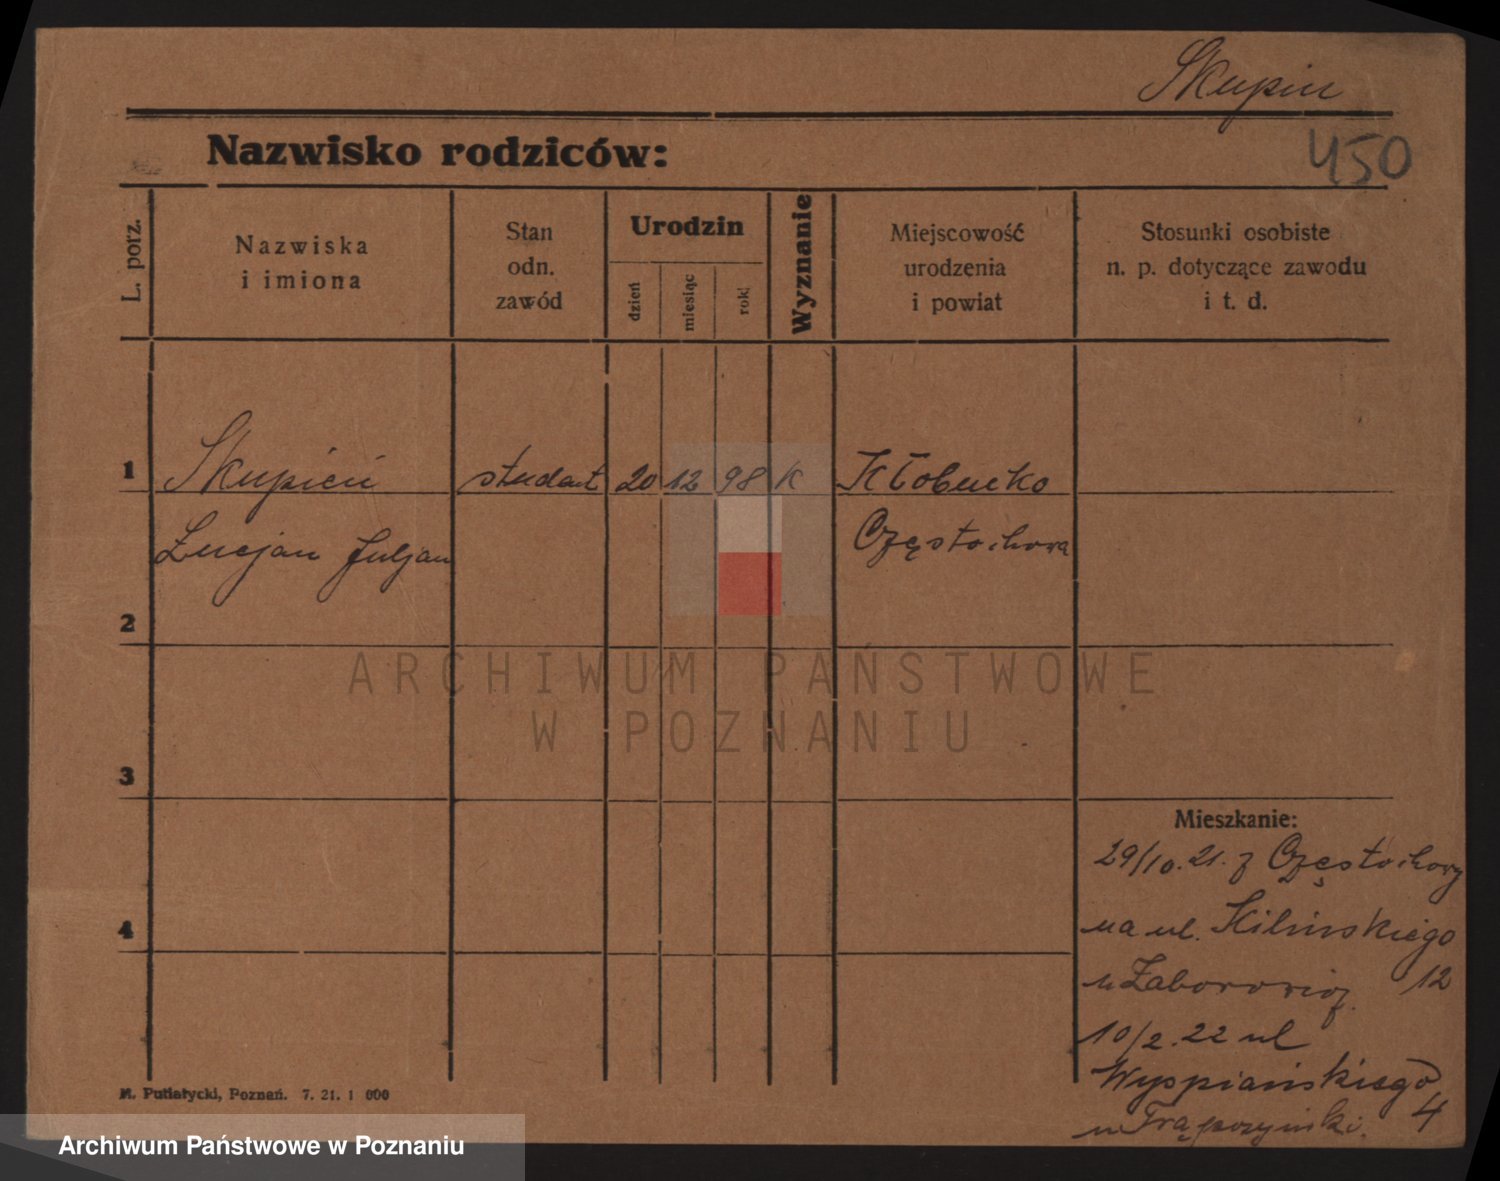 Skupiń
450
Nazwisko rodziców:
L. porz.
Nazwiska
i imiona
Stan
odn.
zawód
Urodzin
dzień
miesiąc
rok
Wyznanie
Miejscowość
urodzenia
i powiat
Stosunki osobiste
n. p. dotyczące zawodu
i t. d.
1 Skupień student 20 12 98 K Kłobucko
Lucjan Juljan Częstochowa
2
3
4
Mieszkanie:
29/10. 21. z Częstochowy
na ul. Kilińskiego
12
10/2. 22 ul
Wyspiańskiego
4
u Trąpczyński.
M. Putiatycki, Poznań. 7. 21. 1 000
ARCHIWUM PAŃSTWOWE
W POZNANIU
Archiwum Państwowe w Poznaniu